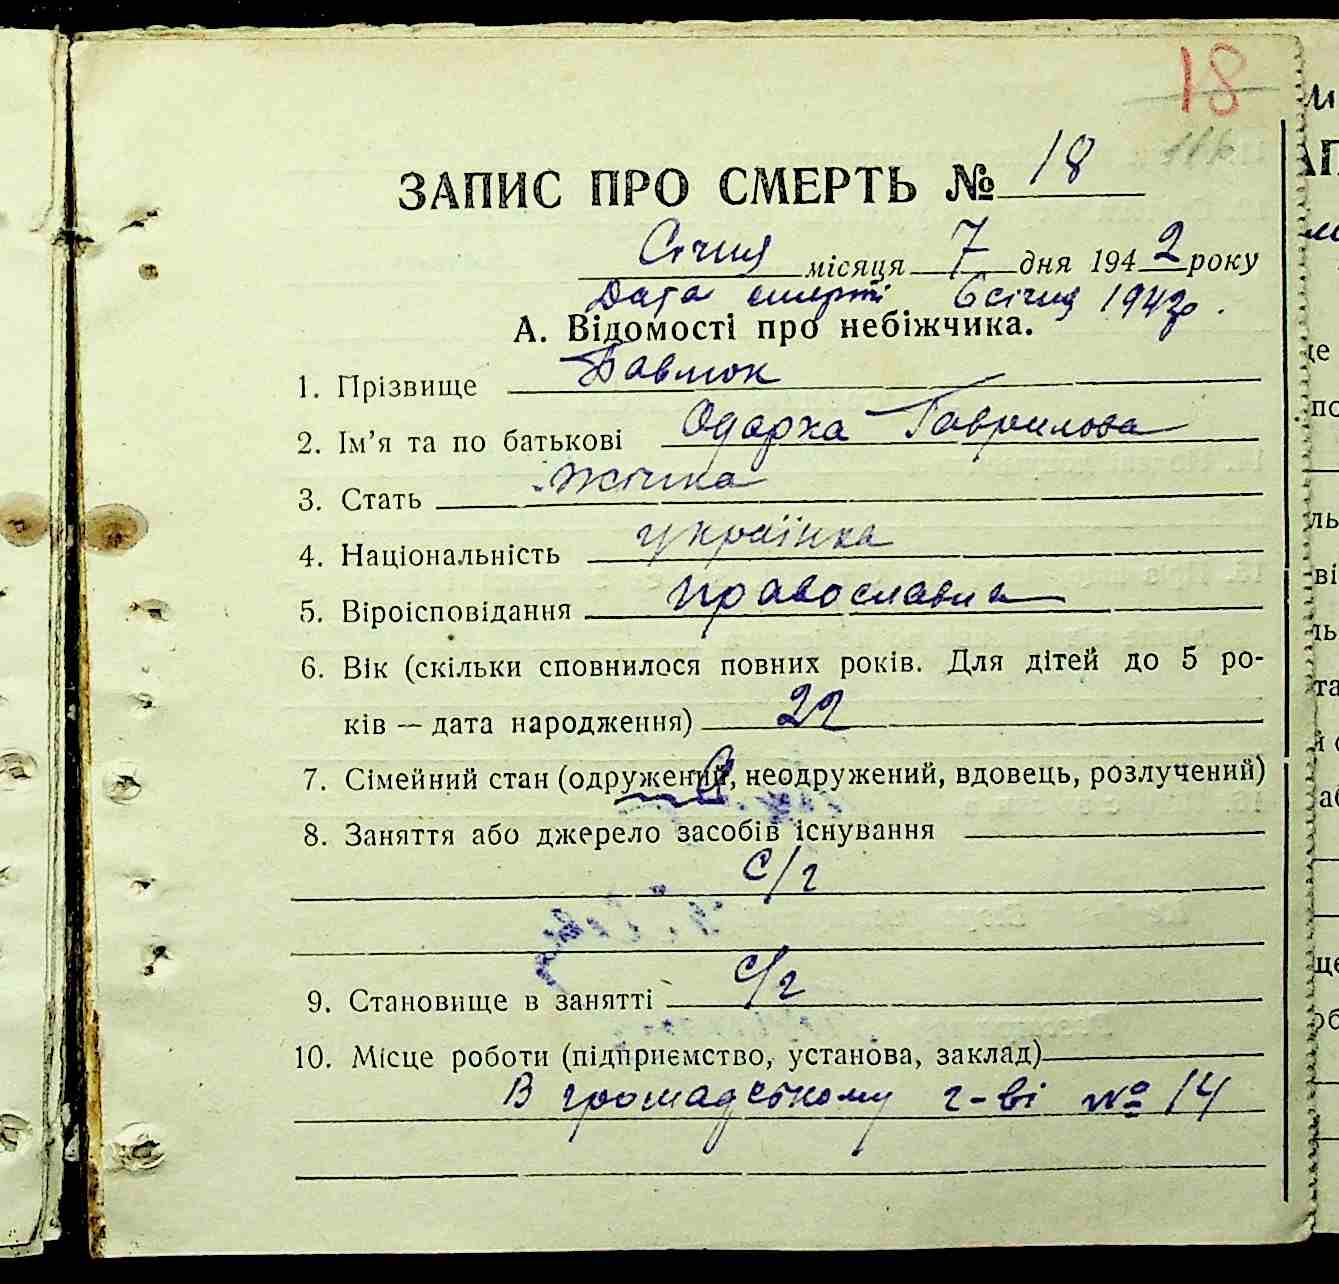 18
116
ЗАПИС ПРО СМЕРТЬ № 18
Січня місяця 7 дня 1942 року
Дата смерті 6 січня 1942р.
А. Відомості про небіжчика.
1. Прізвище Павлюк
2. Ім’я та по батькові Одарка Гаврилова
3. Стать жіжка
4. Національність українка
5. Віроісповідання православна
6. Вік (скільки сповнилося повних років. Для дітей до 5 ро-
ків — дата народження) 22
7. Сімейний стан (одружений, неодружений, вдовець, розлучений)
8. Заняття або джерело засобів існування
с/г
9. Становище в занятті с/г
10. Місце роботи (підприємство, установа, заклад)
В громадському г-ві № 14